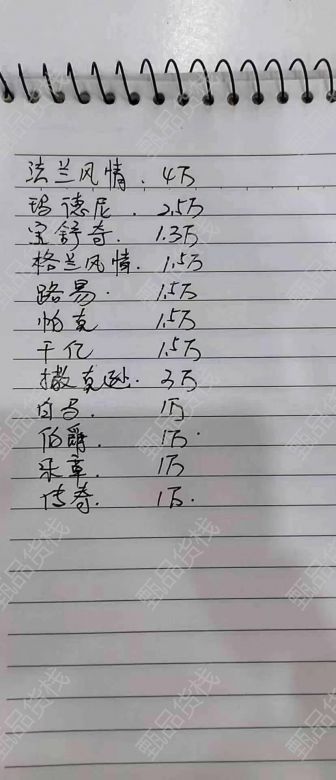 法兰风情. 4万
玛德尼. 2.5万
宝舒奇. 1.3万
格兰风情. 1.5万
路易. 1.5万
帕克 1.5万
千亿 1.5万
撒克逊. 2万
白马. 1万
伯爵. 1万.
乐章. 1万
传奇. 1万.
甄品货栈